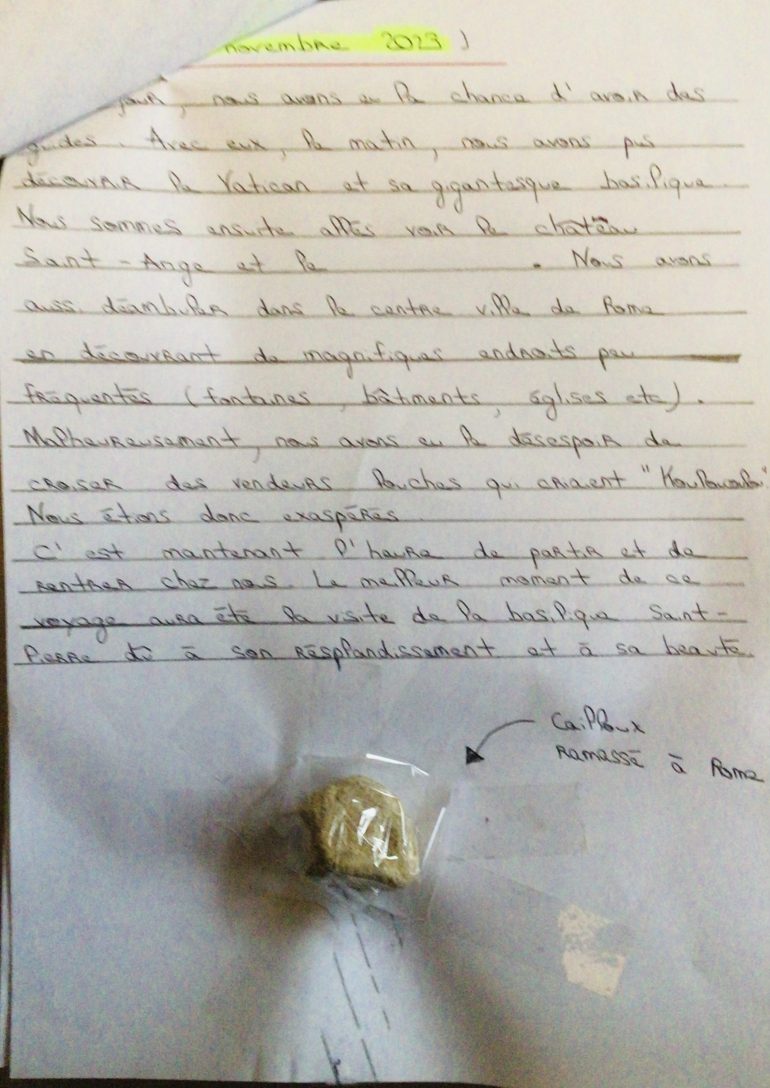 novembre 2023 )
jour, nous avons eu la chance d'avoir des
guides. Avec eux, le matin, nous avons pus
découvrir le Vatican et sa gigantesque basilique.
Nous sommes ensuite allés voir le château
Saint-Ange et le . Nous avons
aussi déambuler dans le centre ville de Rome
en découvrant de magnifiques endroits peu
fréquentés (fontaines, bâtiments, églises etc).
Malheureusement, nous avons eu le désespoir de
croiser des vendeurs louches qui criaient "
Nous étions donc exaspérés.
C'est maintenant l'heure de partir et de
rentrer chez nous. Le meilleur moment de ce
voyage aura été la visite de la basilique Saint-
Pierre dû à son résplandissement et à sa beauté.
Cailloux
ramassé à Rome